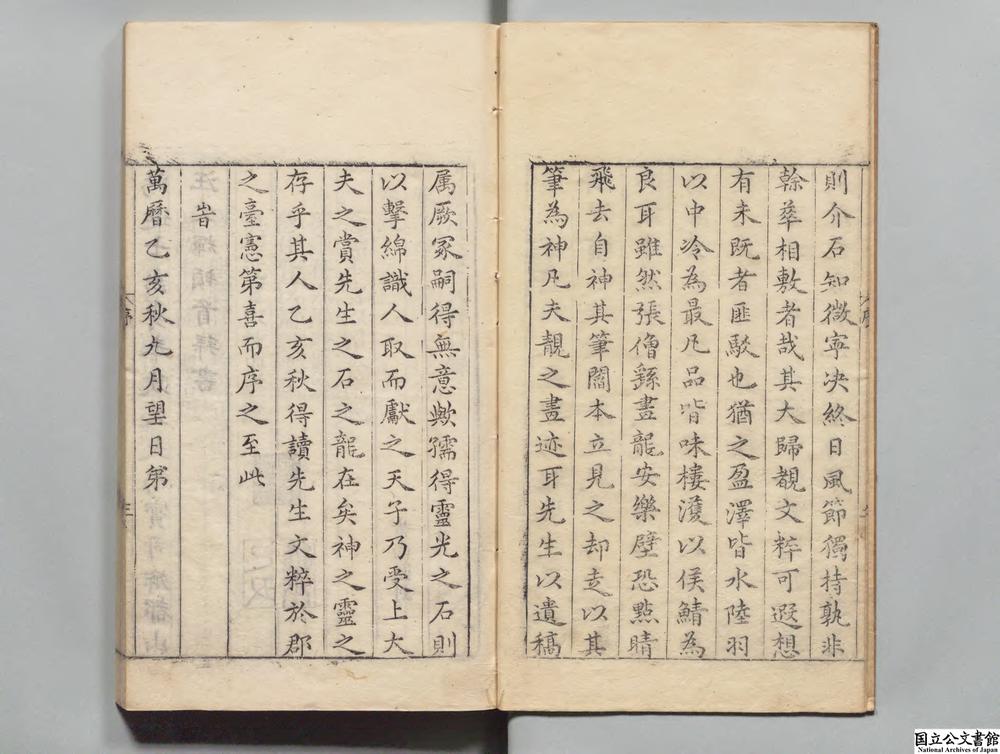 則介石知微寧决終日風節獨持孰非
榦華相敷者哉其大歸覩文粹可遐想
有未既者匪駁也猶之盈澤皆水陸羽
以中冷為最凡品皆味棲濩以侯鯖為
良耳雖然張僧繇畫龍安樂壁恐點睛
飛去自神其筆闔本立見之却走以其
筆為神凡夫覩之畫迹耳先生以遺稿
属厥冢嗣得無意歟孺得靈光之石則
以擊綿識人取而獻之天子乃受上大
夫之賞先生之石之龍在矣神之靈之
存乎其人乙亥秋得讀先生文粹於郡
之臺憲第喜而序之至此
旹
萬曆乙亥秋九月望日第
序
三
国立公文書館
National Archives of Japan